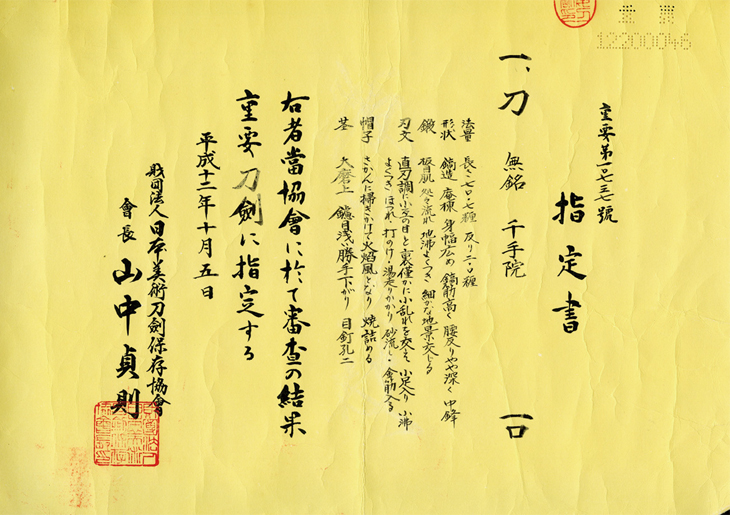 重要
12200046
重要第一〇七三七號
指定書
一、刀 無銘 千手院 一口
法量 長さ七〇・七糎 反り二・〇糎
形状 鎬造 庵棟 身幅広め 鎬筋高く 腰反りやや深く 中鋒
鍛 板目肌 処々流れ 地沸よくつき 細かな地景交じる
刃文 直刃調に小互の目と裏僅かに小乱れを交え 小足入り 小沸
よくつき ほつれ・打のけ・湯走りかかり 砂流し・金筋入る
帽子 さかんに掃きかけて火焰風となり 焼詰める
茎 大磨上 鑢目浅い勝手下がり 目釘孔二
右者當協會に於て審査の結果
重要刀劍に指定する
平成十二年十月五日
財団法人日本美術刀劍保存協會
會長 山中貞則